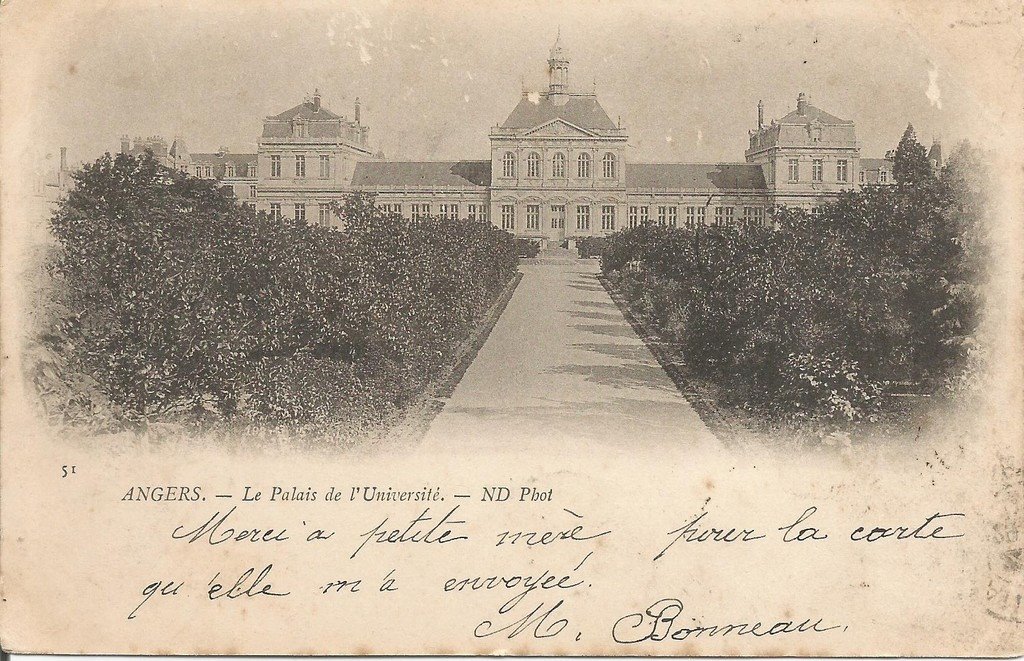 51
ANGERS. — Le Palais de l'Université. — ND Phot
Merci a petite mère pour la carte
qu'elle m'a envoyée.
M. Bonneau.